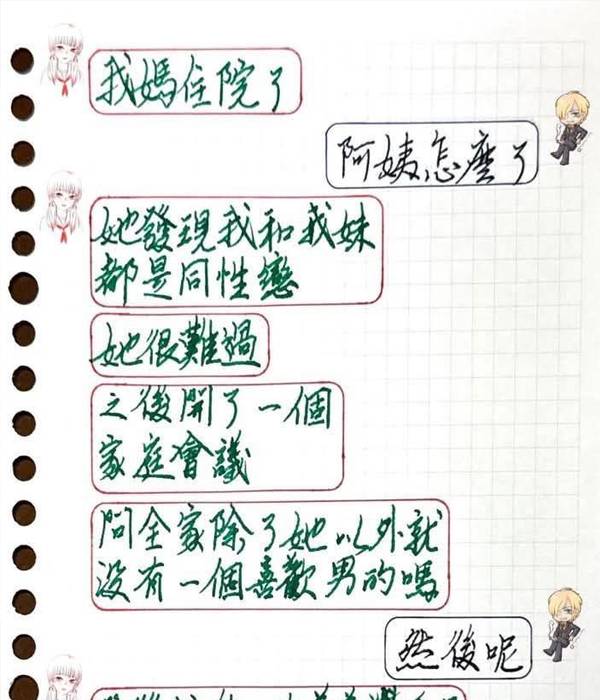 我媽住院了
阿姨怎麼了
她發現我和我妹
都是同性戀
她很難過
之後開了一個
家庭會議
問全家除了她以外就
沒有一個喜歡男的嗎
然後呢